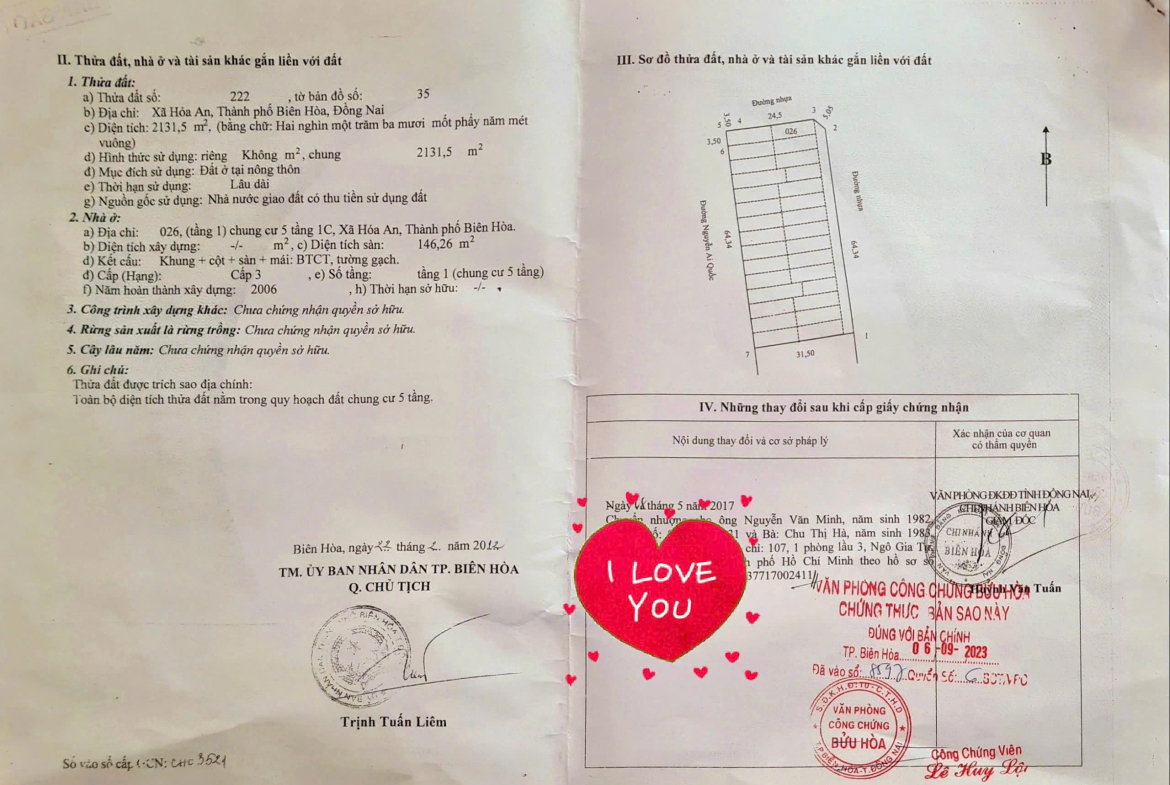 II. Thửa đất, nhà ở và tài sản khác gắn liền với đất
1. Thửa đất:
a) Thửa đất số: 222 , tờ bản đồ số: 35
b) Địa chỉ: Xã Hóa An, Thành phố Biên Hòa, Đồng Nai
c) Diện tích: 2131,5 m², (bằng chữ: Hai nghìn một trăm ba mươi mốt phẩy năm mét
vuông)
d) Hình thức sử dụng: riêng Không m², chung 2131,5 m²
đ) Mục đích sử dụng: Đất ở tại nông thôn
e) Thời hạn sử dụng: Lâu dài
g) Nguồn gốc sử dụng: Nhà nước giao đất có thu tiền sử dụng đất
2. Nhà ở:
a) Địa chỉ: 026, (tầng 1) chung cư 5 tầng 1C, Xã Hóa An, Thành phố Biên Hòa.
b) Diện tích xây dựng: -/- m², c) Diện tích sàn: 146,26 m²
d) Kết cấu: Khung + cột + sàn + mái: BTCT, tường gạch.
đ) Cấp (Hạng): Cấp 3 , e) Số tầng: tầng 1 (chung cư 5 tầng)
f) Năm hoàn thành xây dựng: 2006 , h) Thời hạn sở hữu: -/-
3. Công trình xây dựng khác: Chưa chứng nhận quyền sở hữu.
4. Rừng sản xuất là rừng trồng: Chưa chứng nhận quyền sở hữu.
5. Cây lâu năm: Chưa chứng nhận quyền sở hữu.
6. Ghi chú:
Thửa đất được trích sao địa chính:
Toàn bộ diện tích thửa đất nằm trong quy hoạch đất chung cư 5 tầng.
Biên Hòa, ngày 22 tháng 2 năm 2012
TM. ỦY BAN NHÂN DÂN TP. BIÊN HÒA
Q. CHỦ TỊCH
Trịnh Tuấn Liêm
Số vào sổ cấp GCN: CHC 3521
III. Sơ đồ thửa đất, nhà ở và tài sản khác gắn liền với đất
Đường nhựa
3,50 4 24,5 3 5,05
5 026 2
3,50
6
B
Đường nhựa
Đường Nguyễn Ái Quốc
64,34
64,34
1
7 31,50
IV. Những thay đổi sau khi cấp giấy chứng nhận
Nội dung thay đổi và cơ sở pháp lý
Xác nhận của cơ quan
có thẩm quyền
Ngày tháng 5 năm 2017
Chuyển nhượng cho ông Nguyễn Văn Minh, năm sinh 1982
21 và Bà: Chu Thị Hà, năm sinh 1983
chỉ: 107, 1 phòng lầu 3, Ngô Gia Tự
phố Hồ Chí Minh theo hồ sơ số
37717002411
VĂN PHÒNG ĐKĐĐ TỈNH ĐỒNG NAI
CHI NHÁNH BIÊN HÒA
GIÁM ĐỐC
CHI NHÁNH
BIÊN HÒA
Huỳnh Văn Tuấn
I LOVE
YOU
VĂN PHÒNG CÔNG CHỨNG BỬU HÒA
CHỨNG THỰC BẢN SAO NÀY
ĐÚNG VỚI BẢN CHÍNH
TP. Biên Hòa 06-09-2023
Đã vào sổ: Quyển Số:
S.Đ.K.H.Đ: T.C.T.H.D
VĂN PHÒNG
CÔNG CHỨNG
BỬU HÒA
TP.BIÊN HÒA-T.ĐỒNG NAI
Công Chứng Viên
Lê Huy Lội